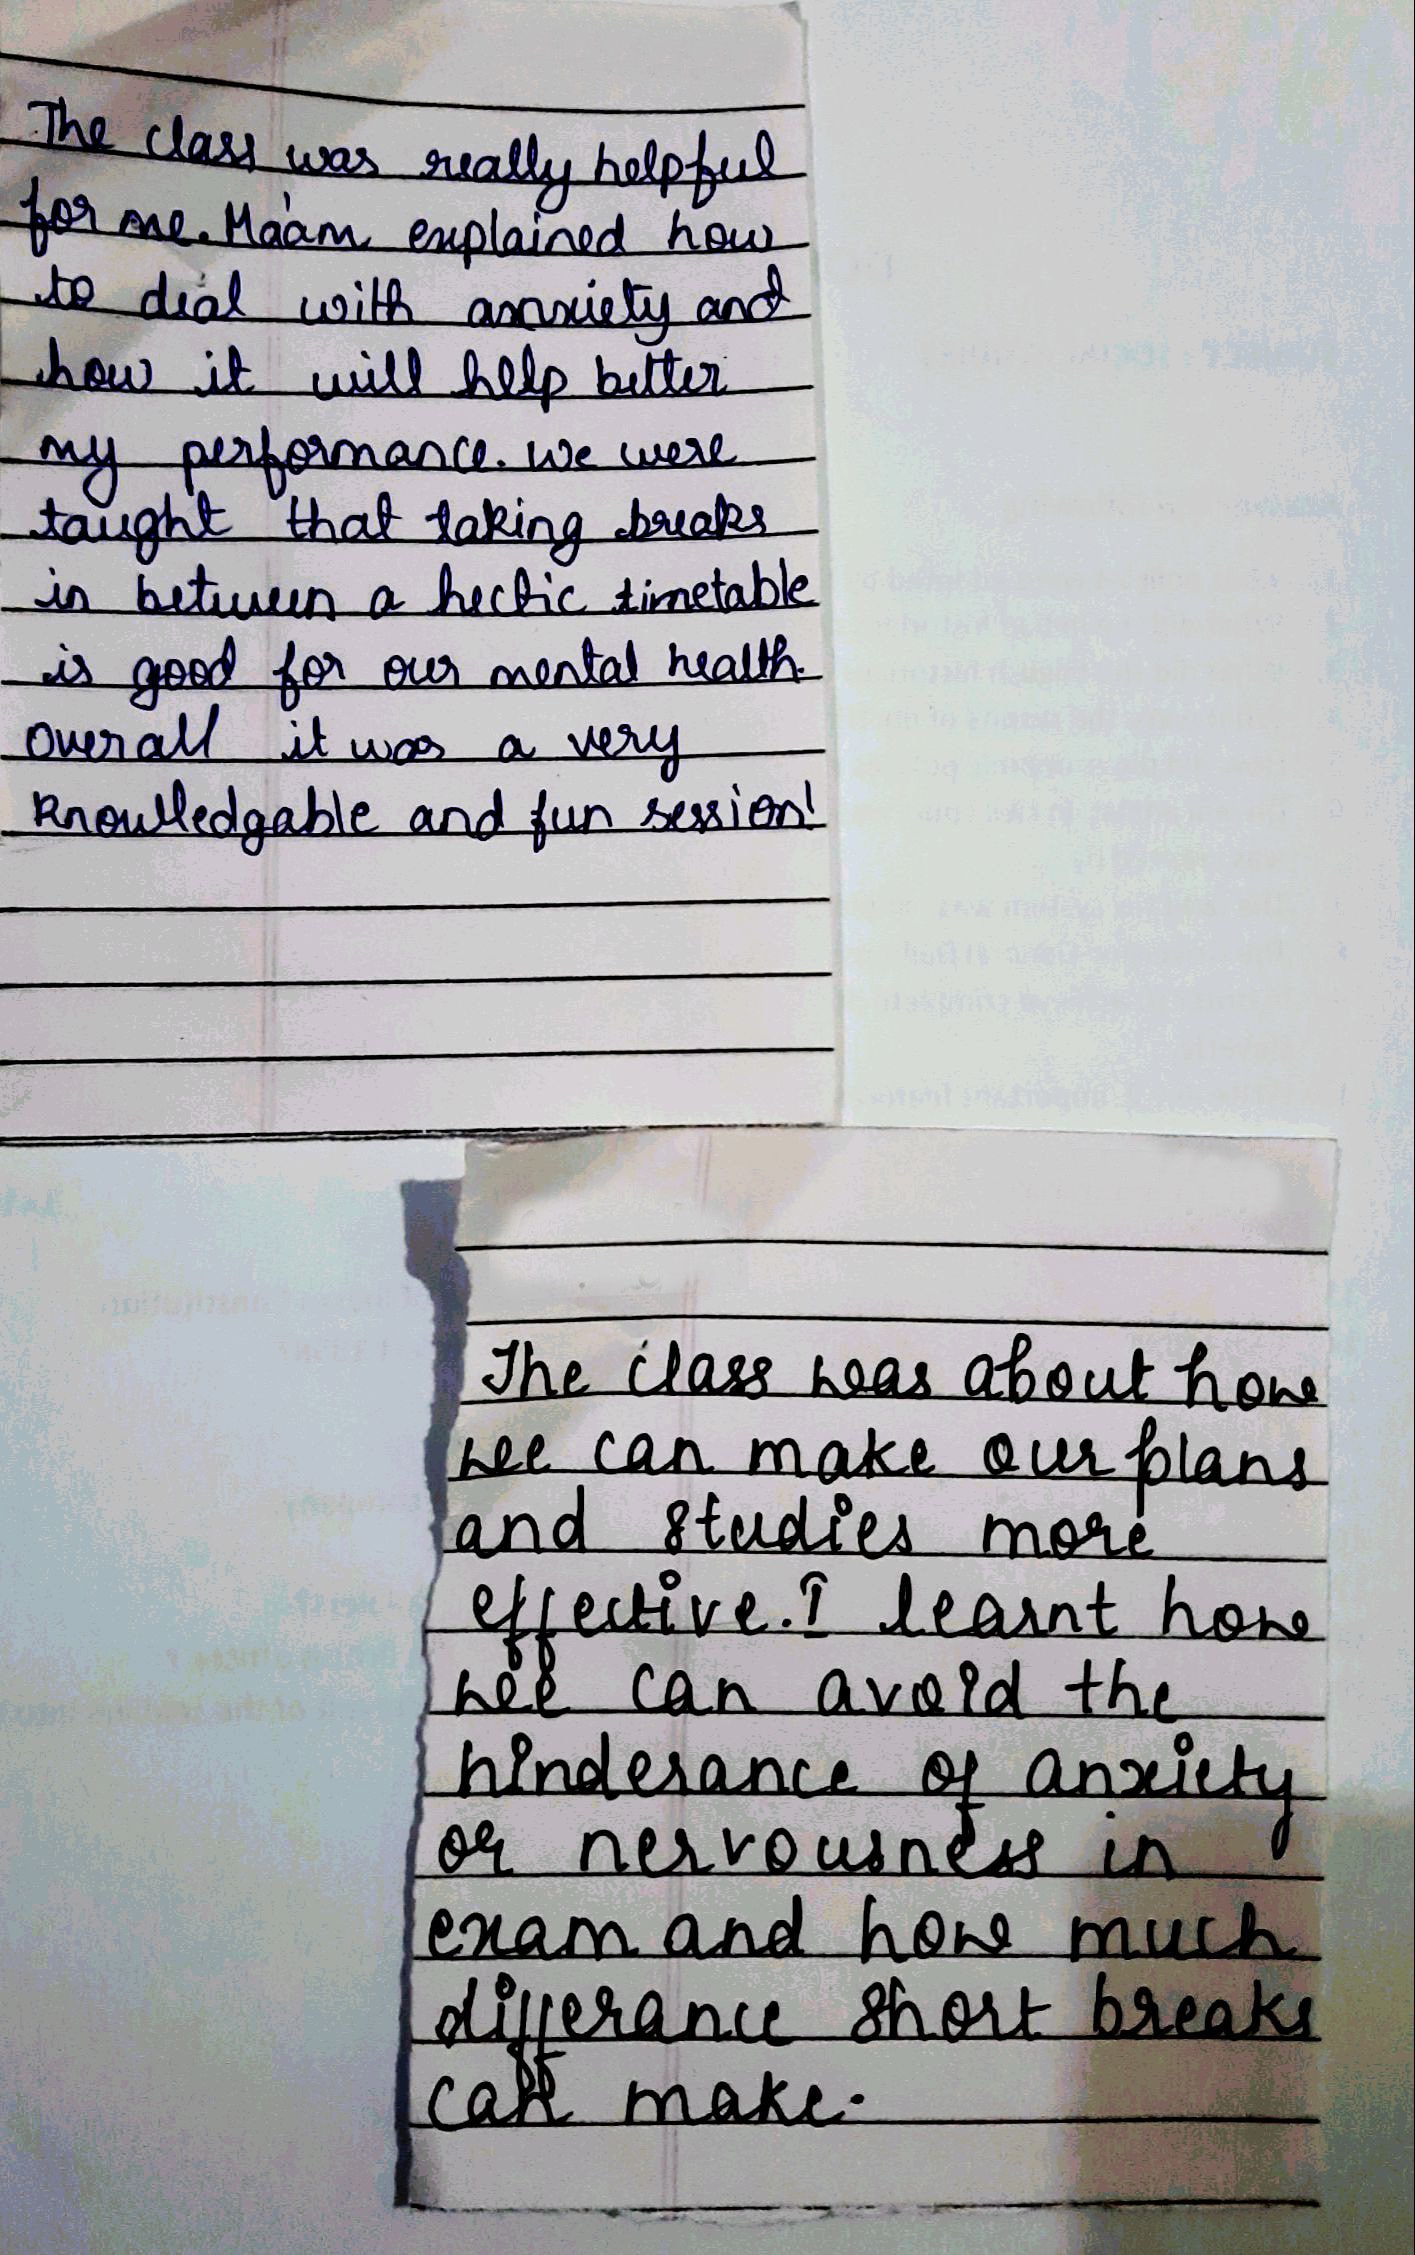 The class was really helpful
for me. Ma'am explained how
to deal with anxiety and
how it will help better
my performance. we were
taught that taking breaks
in between a hectic timetable
is good for our mental health.
overall it was a very
knowledgable and fun session!
The class was about how
we can make our plans
and studies more
effective. I learnt how
we can avoid the
hinderance of anxiety
or nervousness in
exam and how much
differance short breaks
can make.